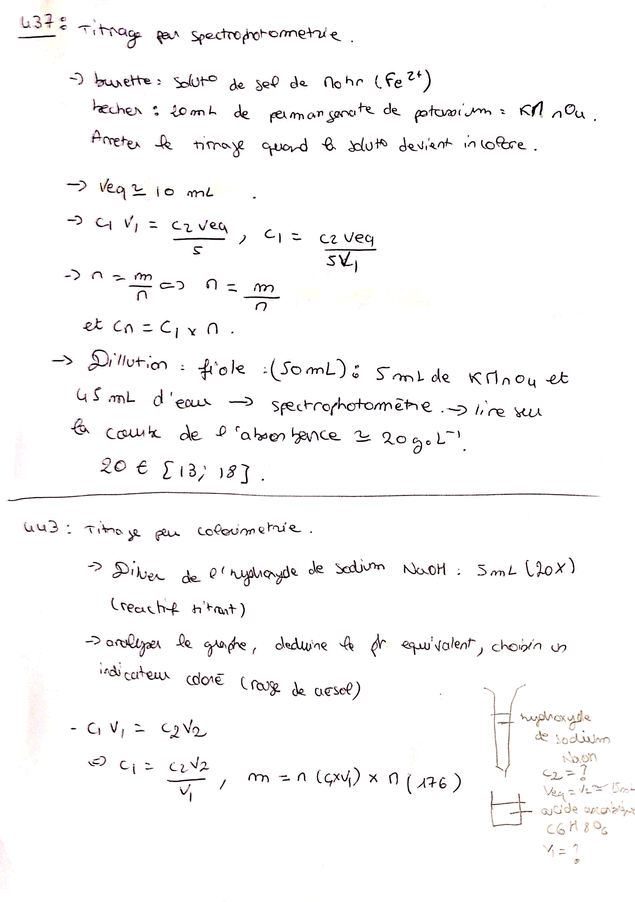 437 : Titrage par spectrophotometrie.
→ burette : soluto de sel de Mohr (Fe²⁺)
becher : 20mL de permanganate de potassium = KMnO4.
Arreter le titrage quand la soluto devient incolore.
→ Veq ≃ 10 mL.
→ C1 V1 = C2 Veq / 5 , C1 = C2 Veq / 5V1
→ n = m/M ⇔ n = m/M
et Cm = C1 × M.
→ Dillution : fiole : (50mL) : 5mL de KMnO4 et
45 mL d'eau → spectrophotomètre. → lire sur
la courbe de l'absorbance ≃ 20 g.L⁻¹.
20 ∈ [13; 18].
443 : Titrage par colorimetrie.
→ Diluer de l'hydroxyde de sodium NaOH : 5mL (20X)
(reactif titrant)
→ analyser le graphe, deduire le pt equivalent, choisir un
indicateur coloré (rouge de cresol)
- C1 V1 = C2V2
⇔ C1 = C2V2 / V1 , m = n (C1×V1) × M (176)
hydroxyde
de sodium
NaOH
C2 = ?
Veq = V2 ≃ 15mL
acide ascorbique
C6H8O6
V1 = ?